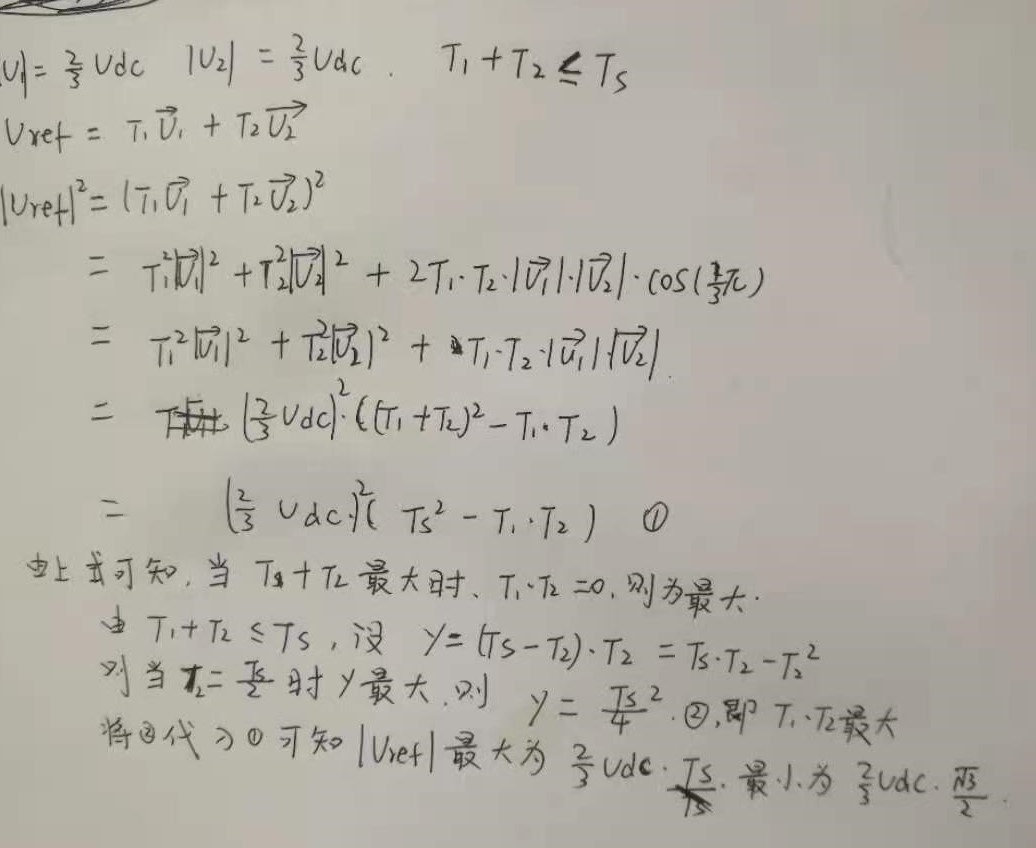 |U₁| = 2/3 Udc |U₂| = 2/3 Udc . T₁ + T₂ ≤ Ts
Uref = T₁U⃗₁ + T₂U⃗₂
|Uref|² = (T₁U⃗₁ + T₂U⃗₂)²
= T₁²|U⃗₁|² + T₂²|U⃗₂|² + 2T₁·T₂·|U⃗₁|·|U⃗₂|·cos(1/3π)
= T₁²|U⃗₁|² + T₂²|U⃗₂|² + T₁·T₂·|U⃗₁||U⃗₂|
= (2/3 Udc)²·((T₁+T₂)² - T₁·T₂)
= (2/3 Udc)²( Ts² - T₁·T₂ ) ①
由上式可知,当 T₁+T₂ 最大时、T₁·T₂=0,则为最大.
由 T₁+T₂ ≤ Ts,设 y=(Ts-T₂)·T₂ = Ts·T₂-T₂²
则当 T₂=Ts/2 时 y最大,则 y = Ts²/4 . ②,即 T₁·T₂最大
将②代入①可知|Uref|最大为 2/3 Udc · Ts/Ts . 最小为 2/3 Udc · √3/2 .